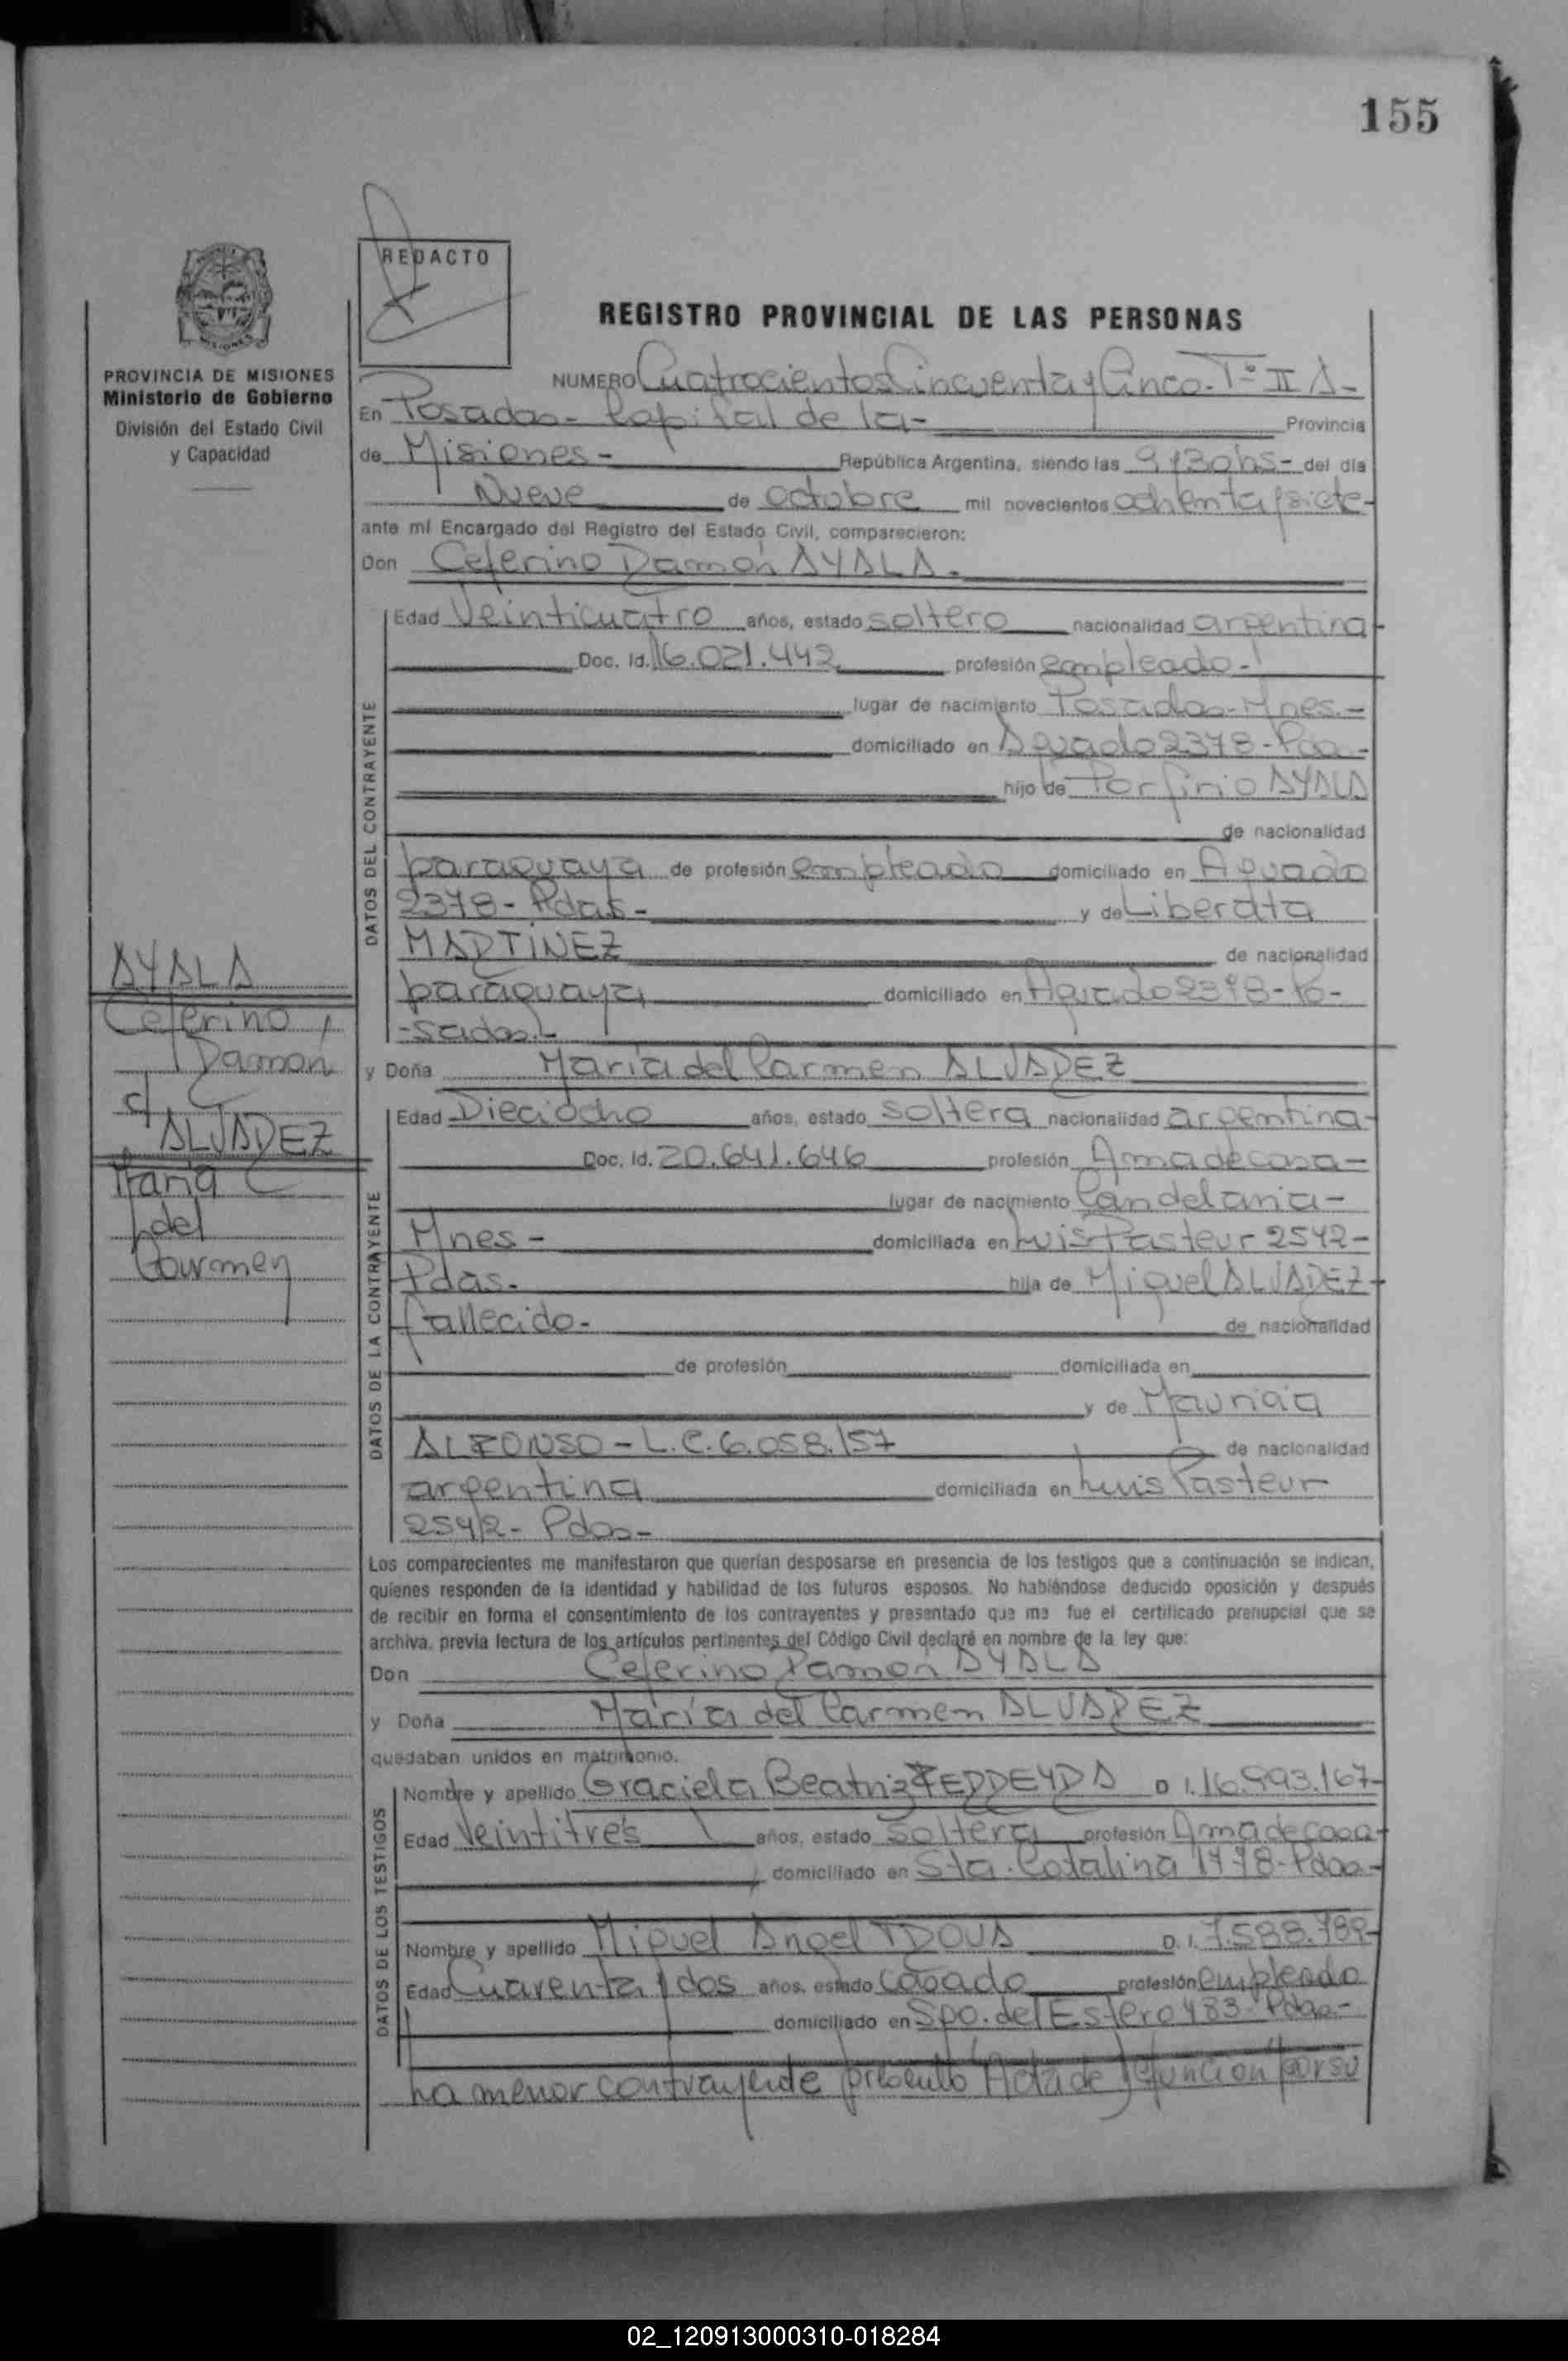 155
REDACTO
REGISTRO PROVINCIAL DE LAS PERSONAS
PROVINCIA DE MISIONES
Ministerio de Gobierno
División del Estado Civil
y Capacidad
NUMERO Cuatrocientos Cincuenta y Cinco. T° II A-
En Posadas- Capital de la- Provincia
de Misiones- República Argentina, siendo las 9 y 30 hs- del día
Nueve de octubre mil novecientos ochenta y siete-
ante mí Encargado del Registro del Estado Civil, comparecieron:
Don Ceferino Ramón AYALA-
DATOS DEL CONTRAYENTE
Edad Veinticuatro años, estado soltero nacionalidad argentina-
Doc. Id. 16.021.442 profesión empleado-
lugar de nacimiento Posadas-Mnes.-
domiciliado en Aguado 2378-Pdas-
hijo de Porfirio AYALA
de nacionalidad
paraguaya de profesión empleado domiciliado en Aguado
2378- Pdas- y de Liberata
MARTINEZ de nacionalidad
paraguaya domiciliado en Aguado 2378-Po-
-sadas-
AYALA
Ceferino
Ramón
c/
ALVAREZ
María
del
Carmen
y Doña María del Carmen ALVAREZ
DATOS DE LA CONTRAYENTE
Edad Dieciocho años, estado soltera nacionalidad argentina-
Doc. Id. 20.641.646 profesión Ama de casa-
lugar de nacimiento Candelaria-
Mnes- domiciliada en Luis Pasteur 2542-
Pdas- hija de Miguel ALVAREZ-
fallecido- de nacionalidad
de profesión domiciliada en
y de Mauricia
ALFONSO- L.C. 6.058.157 de nacionalidad
argentina domiciliada en Luis Pasteur
2542- Pdas-
Los comparecientes me manifestaron que querían desposarse en presencia de los testigos que a continuación se indican,
quienes responden de la identidad y habilidad de los futuros esposos. No habiéndose deducido oposición y después
de recibir en forma el consentimiento de los contrayentes y presentado que me fue el certificado prenupcial que se
archiva, previa lectura de los artículos pertinentes del Código Civil declaré en nombre de la ley que:
Don Ceferino Ramón AYALA
y Doña María del Carmen ALVAREZ
quedaban unidos en matrimonio.
DATOS DE LOS TESTIGOS
Nombre y apellido Graciela Beatriz FERREYRA D.I. 16.993.167-
Edad Veintitrés años, estado soltera profesión Ama de casa-
domiciliado en Sta. Catalina 1478-Pdas-
Nombre y apellido Miguel Angel D.I. 7.588.789-
Edad Cuarenta y dos años, estado casado profesión empleado
domiciliado en Sgo. del Estero 483-Pdas-
La menor contrayente presentó "Acta de defunción" por su
02_120913000310-018284